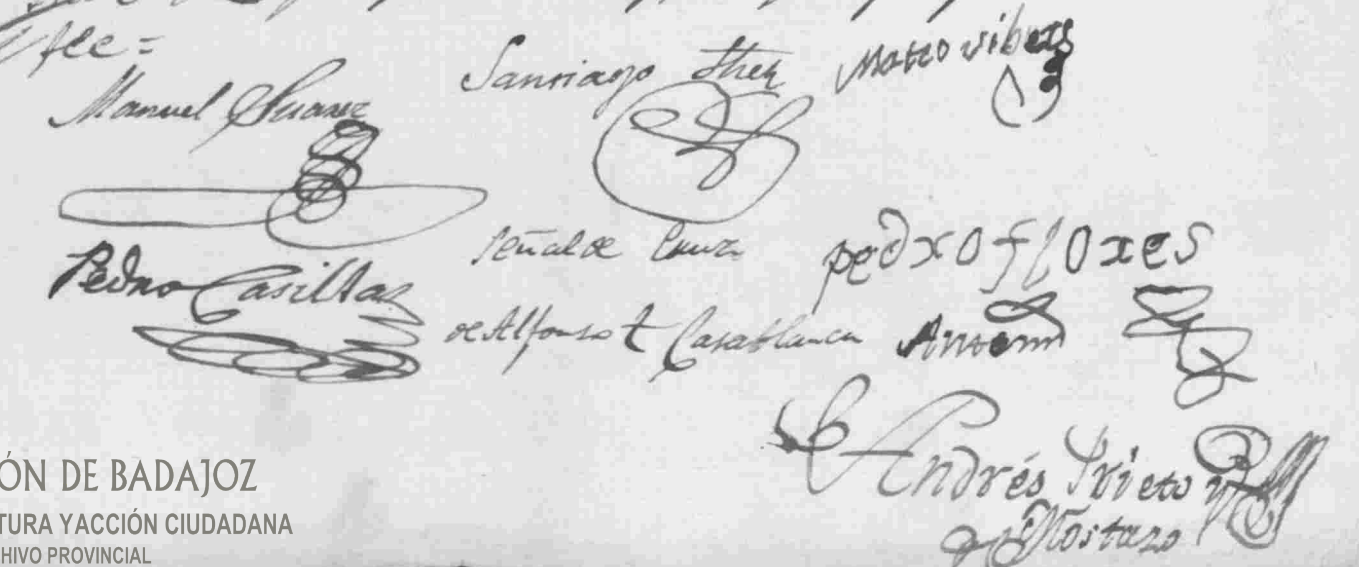 fee =
Manuel Suarez
Santiago
Mateo
Pedro Casillas
Señal de Cruz
de Alfonso t Casablanca
pedro flores
Antemi
Andrés Prieto
Mostazo
ÓN DE BADAJOZ
TURA YACCIÓN CIUDADANA
HIVO PROVINCIAL